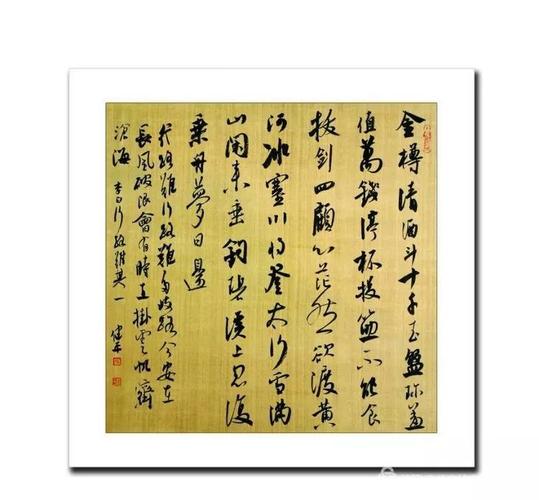 金樽清酒斗十千玉盤珍羞
值萬錢停杯投筯不能食
拔劍四顧心茫然欲渡黃
河冰塞川將登太行雪滿
山閑來垂釣碧溪上忽復
乘舟夢日邊
行路難行路難多歧路今安在
長風破浪會有時直掛雲帆濟
滄海 李白行路難其一